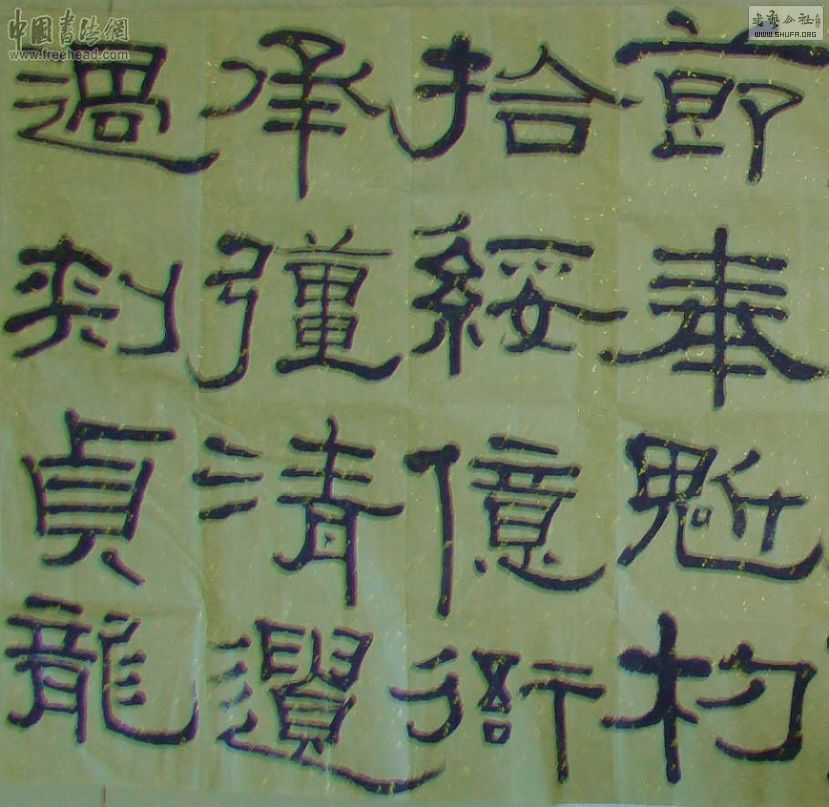 中國書法網
www.freehead.com
書藝公社
WWW.SHUFA.ORG
節奉魁杓
拾綏億衙
承彊清遺
過刺貞龍